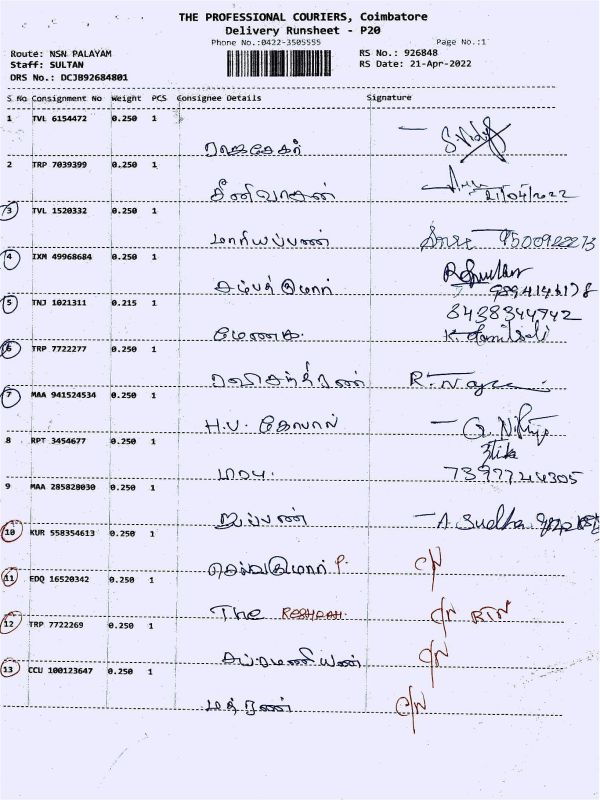 THE PROFESSIONAL COURIERS, Coimbatore
Delivery Runsheet - P20
Phone No.:0422-3505555 Page No.:1
Route: NSN PALAYAM RS No.: 926848
Staff: SULTAN RS Date: 21-Apr-2022
DRS No.: DCJB92684801
S No Consignment No Weight PCS Consignee Details Signature
1 TVL 6154472 0.250 1
ராஜசேகர்
2 TRP 7039399 0.250 1
சீனிவாசன் 21/04/2022
3 TVL 1520332 0.250 1
மாரியப்பன் 9500922273
4 IXM 49968684 0.250 1
சம்பத்குமார்
5 TNJ 1021311 0.215 1 8438344742
மேனகா
6 TRP 7722277 0.250 1
ரவிச்சந்திரன்
7 MAA 941524534 0.250 1
H.V. கோபால்
8 RPT 3454677 0.250 1
73977244305
9 MAA 285828030 0.250 1
ஐயப்பன் A. Sudha
10 KUR 558354613 0.250 1
செல்வகுமார் P. C/N
11 EDQ 16520342 0.250 1
The C/N RTN
12 TRP 7722269 0.250 1
சுப்ரமணியன் C/N
13 CCU 100123647 0.250 1
C/N